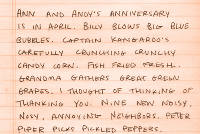 ANN AND ANDY'S ANNIVERSARY
IS IN APRIL. BILLY BLOWS BIG BLUE
BUBBLES. CAPTAIN KANGAROO'S
CAREFULLY CRUNCHING CRUNCHY
CANDY CORN. FISH FRIED FRESH.
GRANDMA GATHERS GREAT GREEN
GRAPES. I THOUGHT OF THINKING OF
THANKING YOU. NINE NEW NOISY,
NOSY, ANNOYING NEIGHBORS. PETER
PIPER PICKS PICKLED PEPPERS.